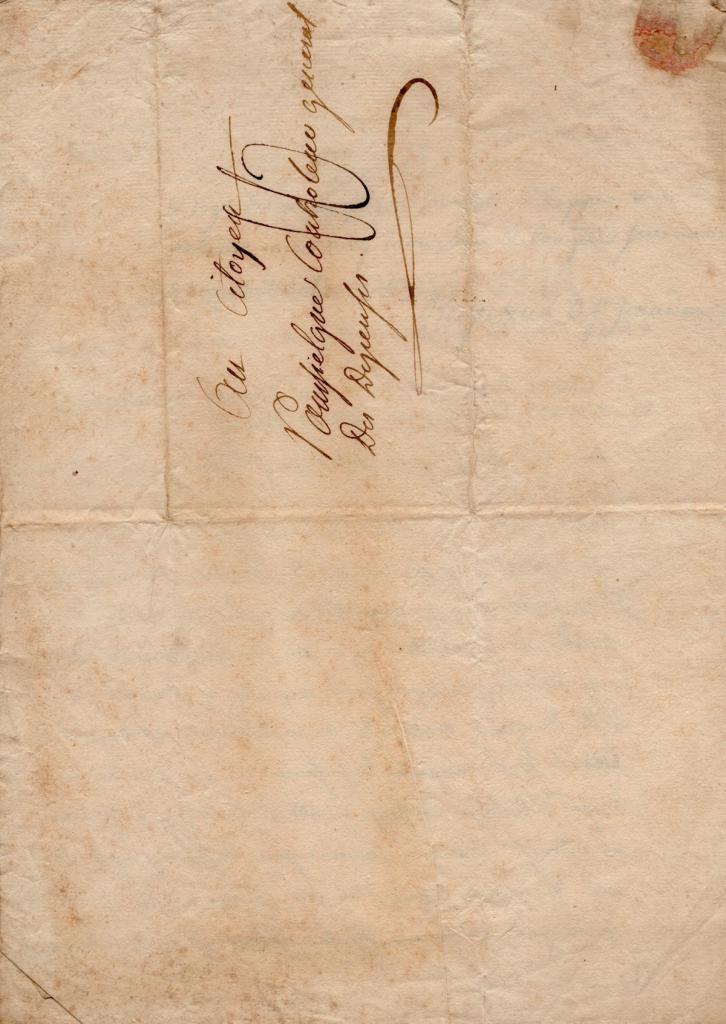 Au Citoyen
Poussielgue Controleur general
Des Depenses.